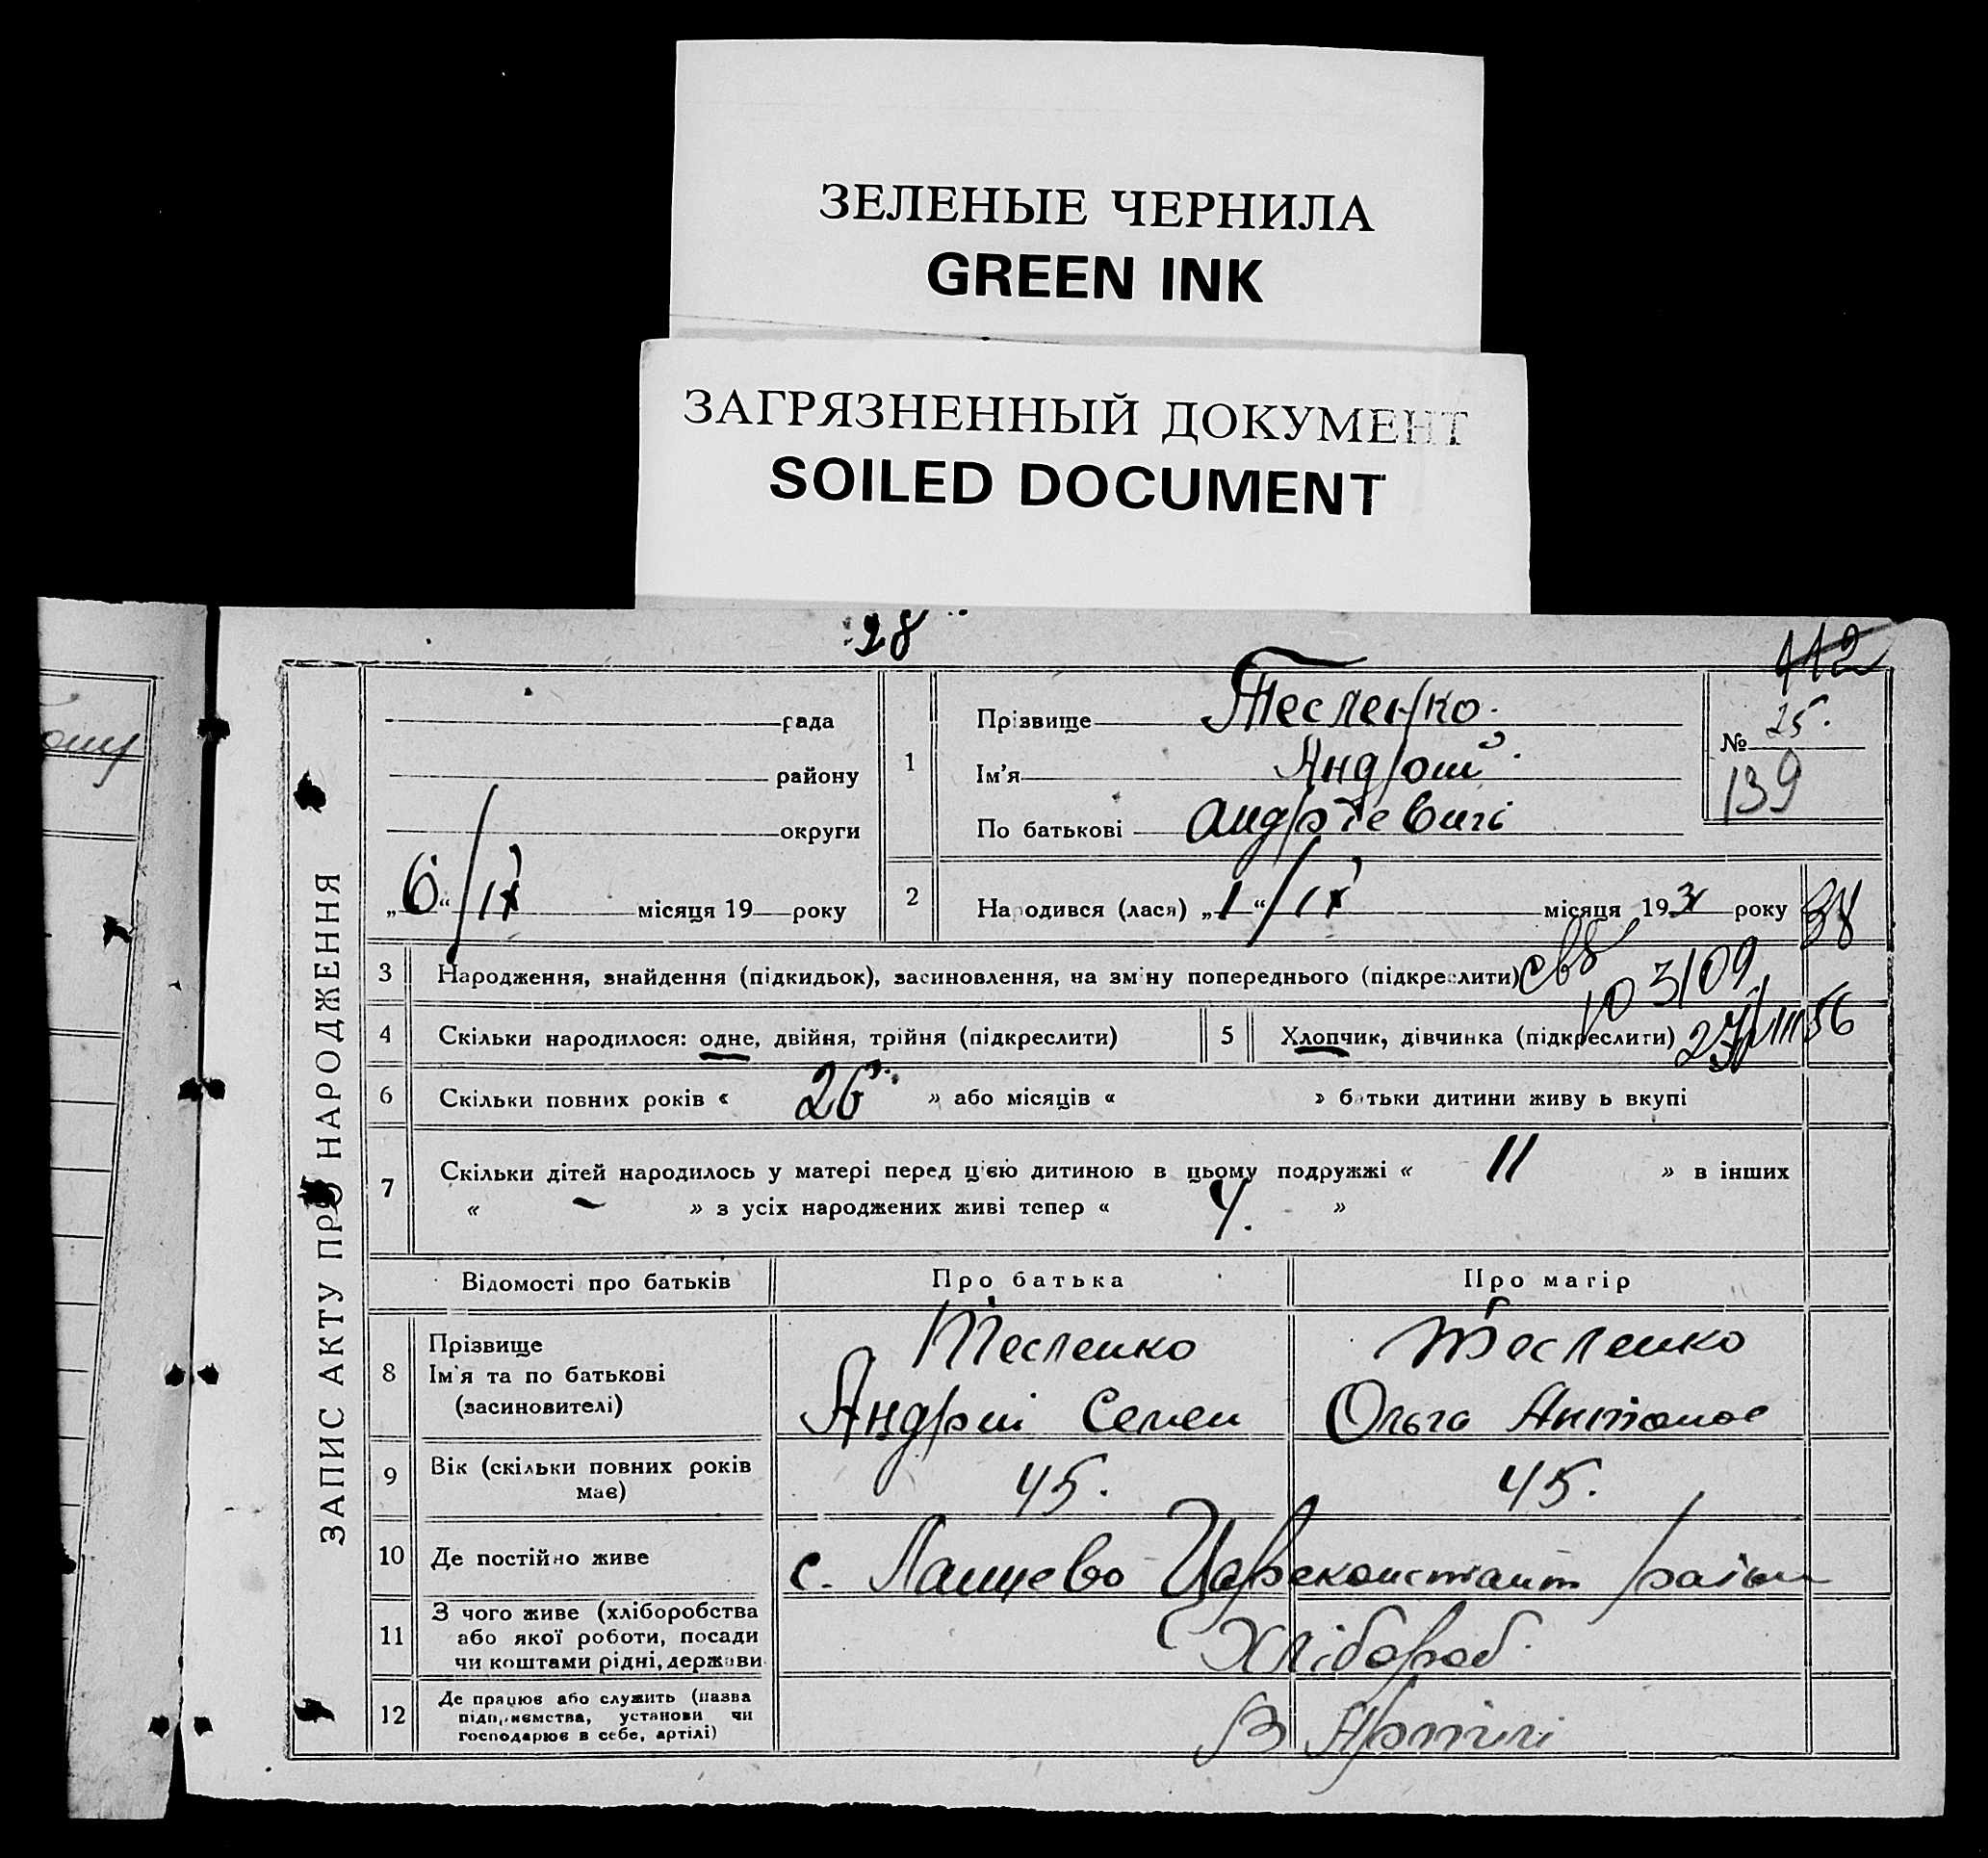 ЗЕЛЕНЫЕ ЧЕРНИЛА
GREEN INK
ЗАГРЯЗНЕННЫЙ ДОКУМЕНТ
SOILED DOCUMENT
28
412
ЗАПИС АКТУ ПРО НАРОДЖЕННЯ
рада
району
округи
„6“/IX місяця 19 року
1
Прізвище Тесленко
Ім'я Андрій
По батькові Андрієвичі
№ 25.
139
2 Народився (лася) „1“/IX місяця 193 року
38
3 Народження, знайдення (підкидьок), засиновлення, на зміну попереднього (підкреслити)
103109
4 Скільки народилося: одне, двійня, трійня (підкреслити)
5 Хлопчик, дівчинка (підкреслити)
27/VIII 56
6 Скільки повних років « 26 » або місяців « » батьки дитини живуть вкупі
7 Скільки дітей народилось у матері перед цією дитиною в цьому подружжі « 11 » в інших
« – » з усіх народжених живі тепер « 4. »
Відомості про батьків Про батька Про матір
8 Прізвище Тесленко Тесленко
Ім'я та по батькові Андрій Семен Ольга Антонов
(засиновителі)
9 Вік (скільки повних років має) 45. 45.
10 Де постійно живе с. Лащево Цареконстант район
11 З чого живе (хліборобства
або якої роботи, посади
чи коштами рідні, держави
Хлібороб
12 Де працює або служить (назва
підприємства, установи чи
господарює в себе, артілі)
В Артілі